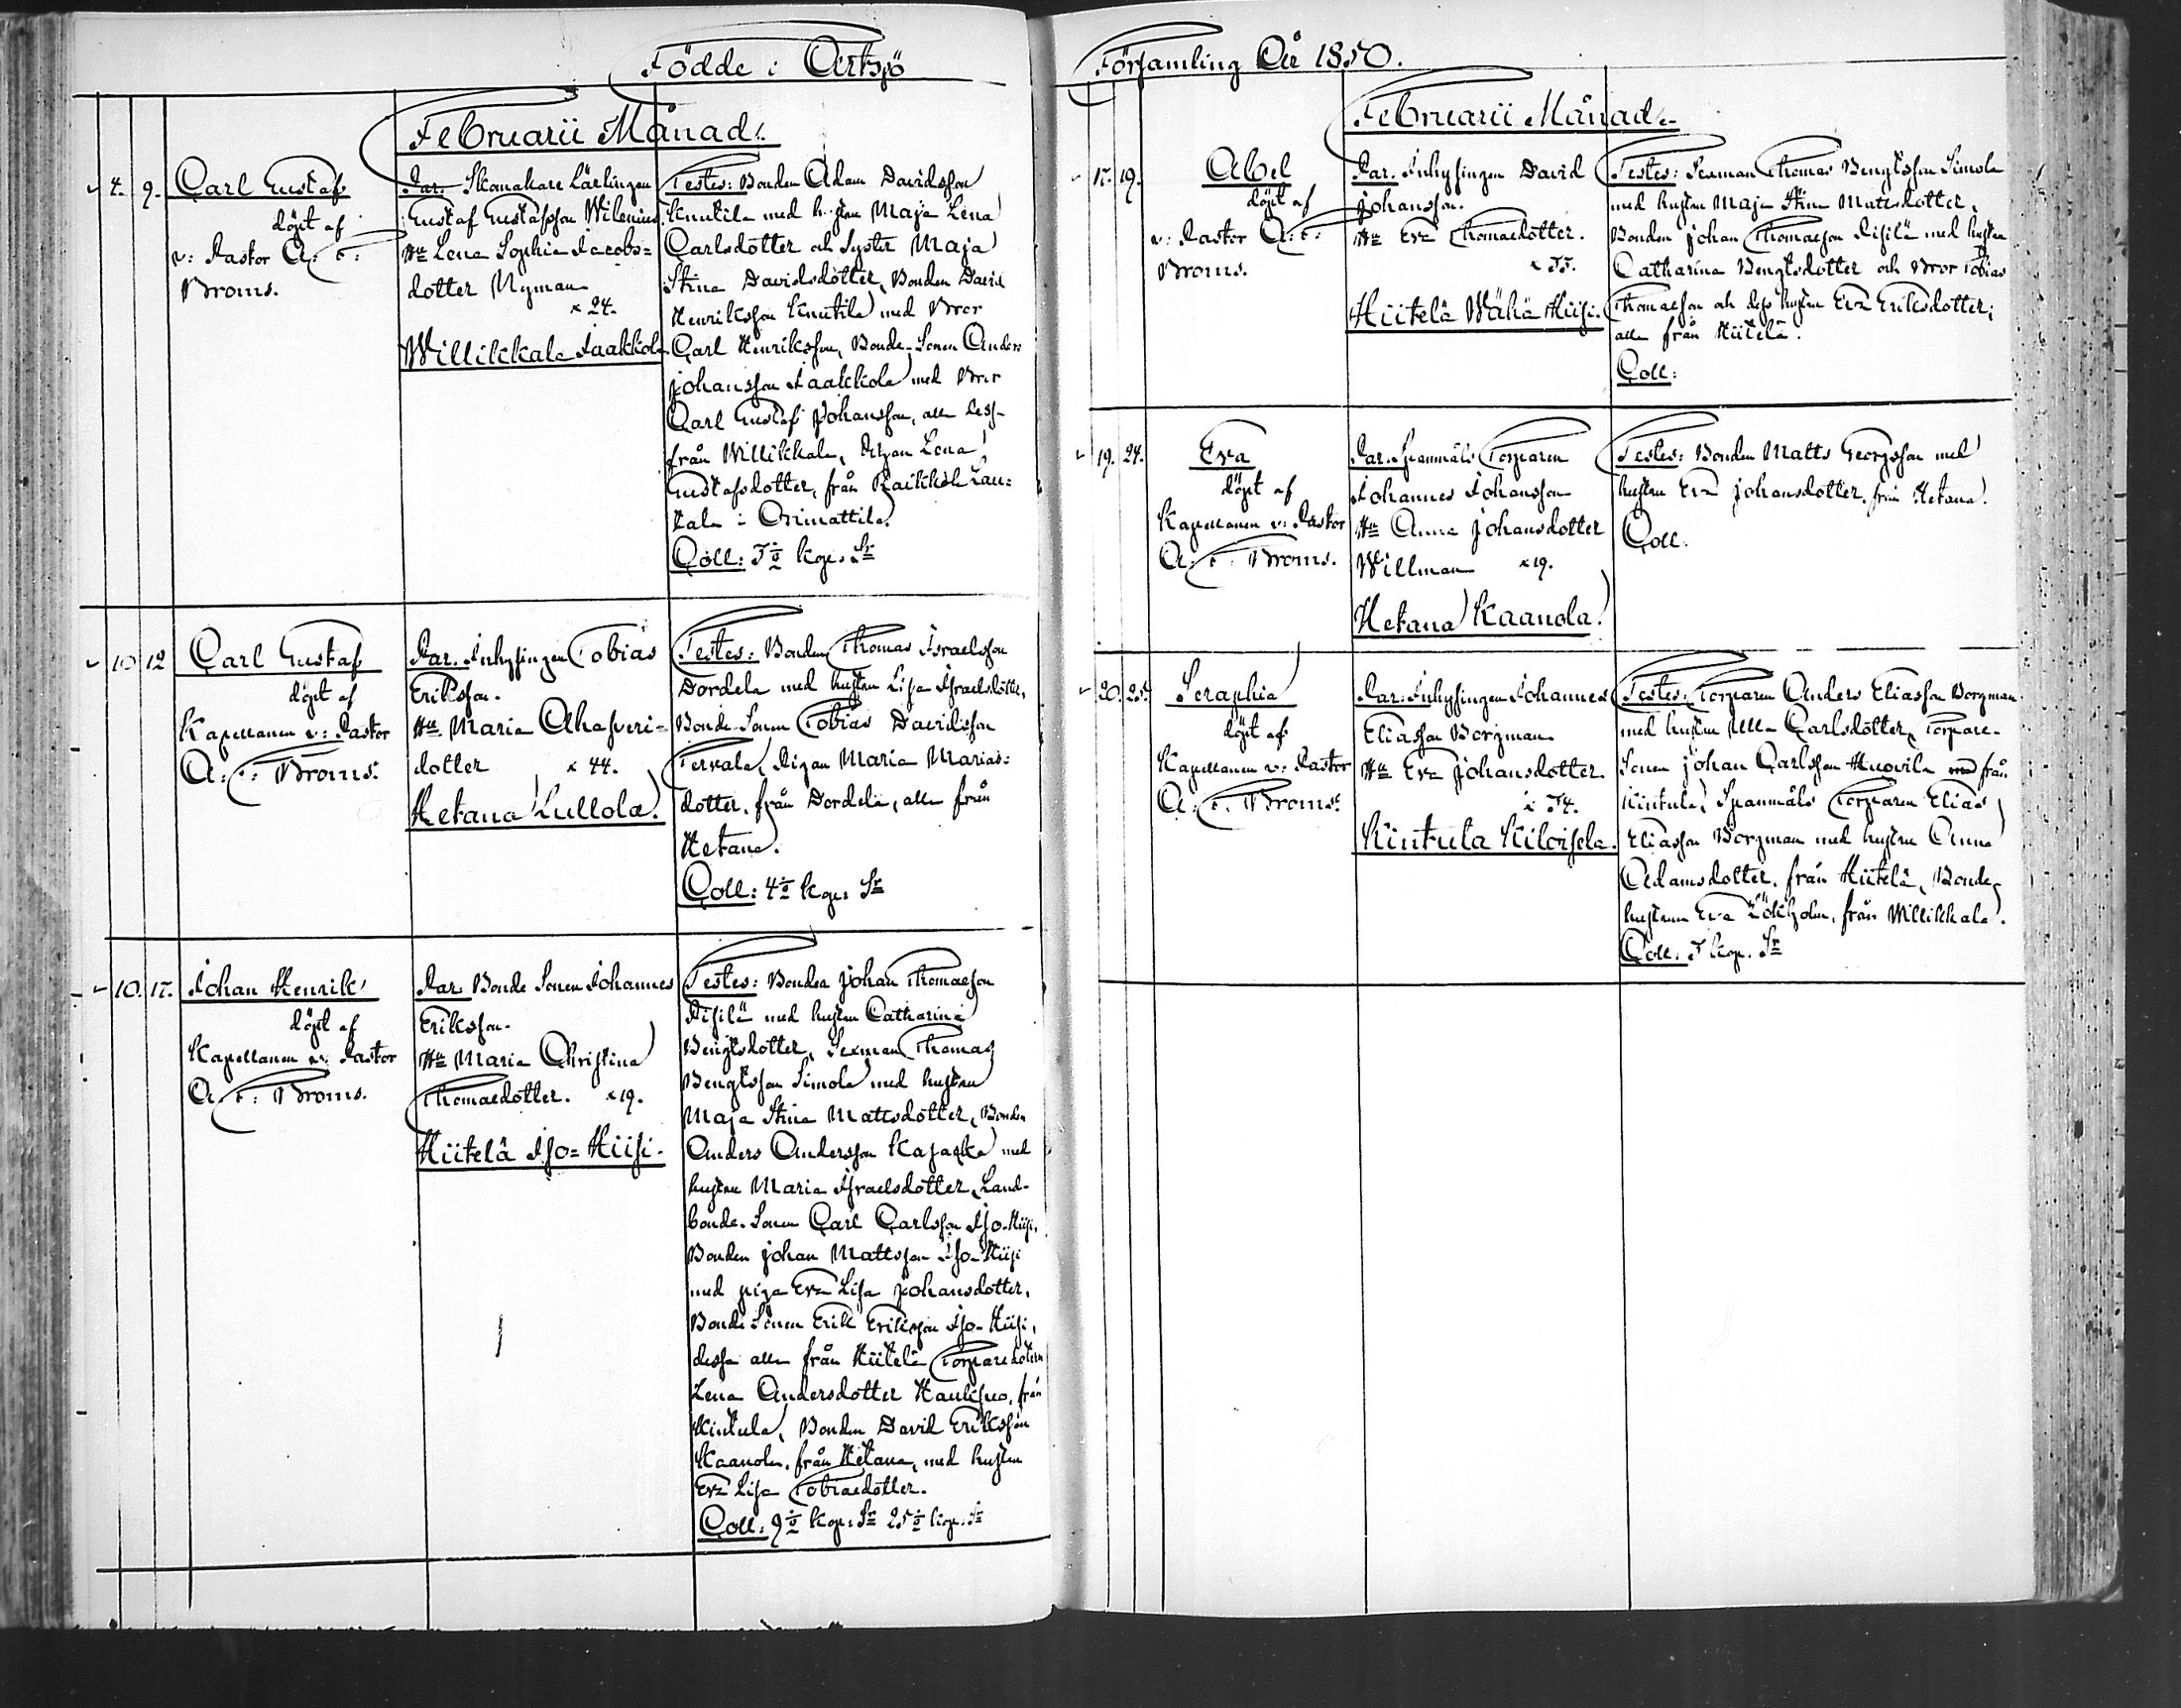 Födde i Artsjö
Februarii Månad.
4. 9. Carl Gustaf
döpt af
v: Pastor A: F:
Broms.
Par. Skomakare Lärlingen
Gustaf Gustafsson Wilenius
Hu Lena Sophia Jacobs=
dotter Nyman
× 24.
Willikkala Jaakkola
Testes: Bonden Adam Davidsson
Knutila med hustru Maja Lena
Carlsdotter och Syster Maja
Stina Davidsdotter, Bonden David
Henriksson Knutila med Bror
Carl Henriksson, Bonde-Sonen Anders
Johansson Jaakkola med Bror
Carl Gustaf Johansson, alla dess-
från Willikkala, Pigan Lena
Gustafsdotter, från
i Orimattila.
Coll: kop. Sr
10 12 Carl Gustaf
döpt af
Kapellanen v: Pastor
A: F: Broms.
Par. Inhysingen Tobias
Eriksson.
Hu Maria Ahasveri=
dotter × 44.
Hetana Lullola.
Testes: Bonden Thomas Israelsson
Dordela med hustru Lisa Israelsdotter,
Bonde Sonen Tobias Davidsson
Tervala, Pigan Maria Marias=
dotter, från Dordela, alla från
Hetana.
Coll: 4 kop. Sr
10. 17. Johan Henrik
döpt af
Kapellanen v: Pastor
A: F: Broms.
Par. Bonde Sonen Johannes
Eriksson.
Hu Maria Christina
Thomaedotter. × 19.
Hiitelä Iso=Hiisi.
Testes: Bonden Johan Thomaesson
med hustru Catharina
Bengtsdotter, Sexman Thomas
Bengtsson Simola med hustru
Maja Stina Mattsdotter, Bonden
Anders Andersson med
hustru Maria Israelsdotter, Land-
bonde-Sonen Carl Carlsson Iso-Hiisi,
Bonden Johan Mattsson Iso-Hiisi
med piga Eva Lisa Johansdotter,
Bonde Sonen Erik Eriksson Iso-Hiisi,
dessa alla från Hiitelä Torparedottern
Lena Andersdotter från
Kintula, Bonden David Eriksson
Kaanola, från Hetana, med hustru
Eva Lisa Tobiaedotter.
Coll: 9 kop. Sr 25 kop. Sr
Församling År 1850.
Februarii Månad.
17. 19. Abel
döpt af
v: Pastor A: F:
Broms.
Par. Inhysingen David
Johansson.
Hu Eva Thomaedotter.
× 35.
Hiitelä Wähä Hiisi.
Testes: Sexman Thomas Bengtsson Simola
med hustru Maja Stina Mattsdotter,
Bonden Johan Thomaesson med hustru
Catharina Bengtsdotter och Bror Tobias
Thomaesson och dess hustru Eva Eriksdotter;
alla från Hiitelä.
Coll:
19. 24. Eva
döpt af
Kapellanen v: Pastor
A: F: Broms.
Par. Spanmåls Torparen
Johannes Johansson
Hu Anna Johansdotter
Willman × 19.
Hetana Kaanola.
Testes: Bonden Matts Georgsson med
hustru Eva Johansdotter, från Hetana.
Coll.
20. 25. Seraphia
döpt af
Kapellanen v: Pastor
A: F: Broms.
Par. Inhysingen Johannes
Eliasson Borgman
Hu Eva Johansdotter.
× 34.
Kintula Kiloisela.
Testes: Torparen Anders Eliasson Borgman
med hustru Ulla Carlsdotter, Torpare-
Sonen Johan Carlsson Huovila från
Kintula, Spanmåls Torparen Elias
Eliasson Borgman med hustru Anna
Adamsdotter, från Hiitelä, Bonde-
hustrun Eva Lökholm, från Willikkala.
Coll: kop. Sr